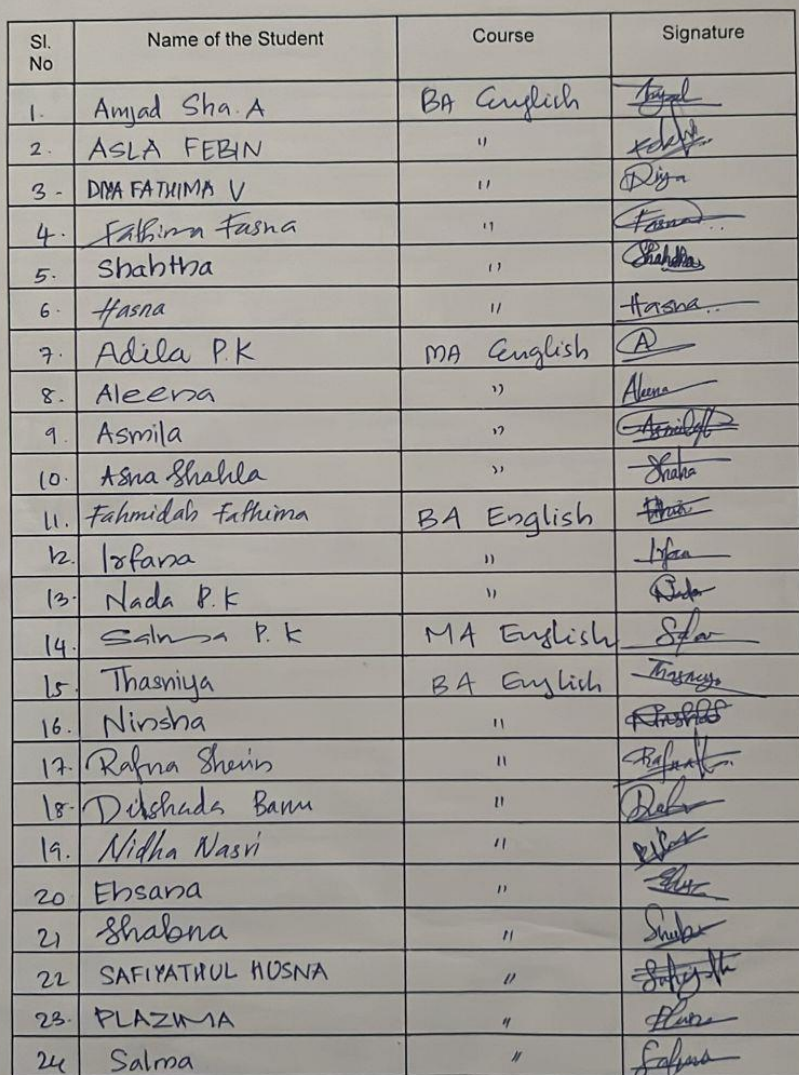 Sl. No Name of the Student Course Signature
1. Amjad Sha. A BA English
2. ASLA FEBIN "
3 - DIYA FATHIMA V " Diya
4. Fathima Fasna " Fasna
5. Shahtha "
6. Hasna " Hasna
7. Adila P.K MA English A
8. Aleena " Aleena
9. Asmila "
10. Asna Shahla "
11. Fahmidah Fathima BA English
12. Irfana "
13. Nada P.K "
14. Salma P.K MA English
15 Thasniya BA English
16. Ninsha "
17. Rafna Sherin "
18. Dilshada Banu "
19. Nidha Nasri "
20 Ehsana "
21 Shabna "
22 SAFIYATHUL HUSNA "
23. "
24 Salma "